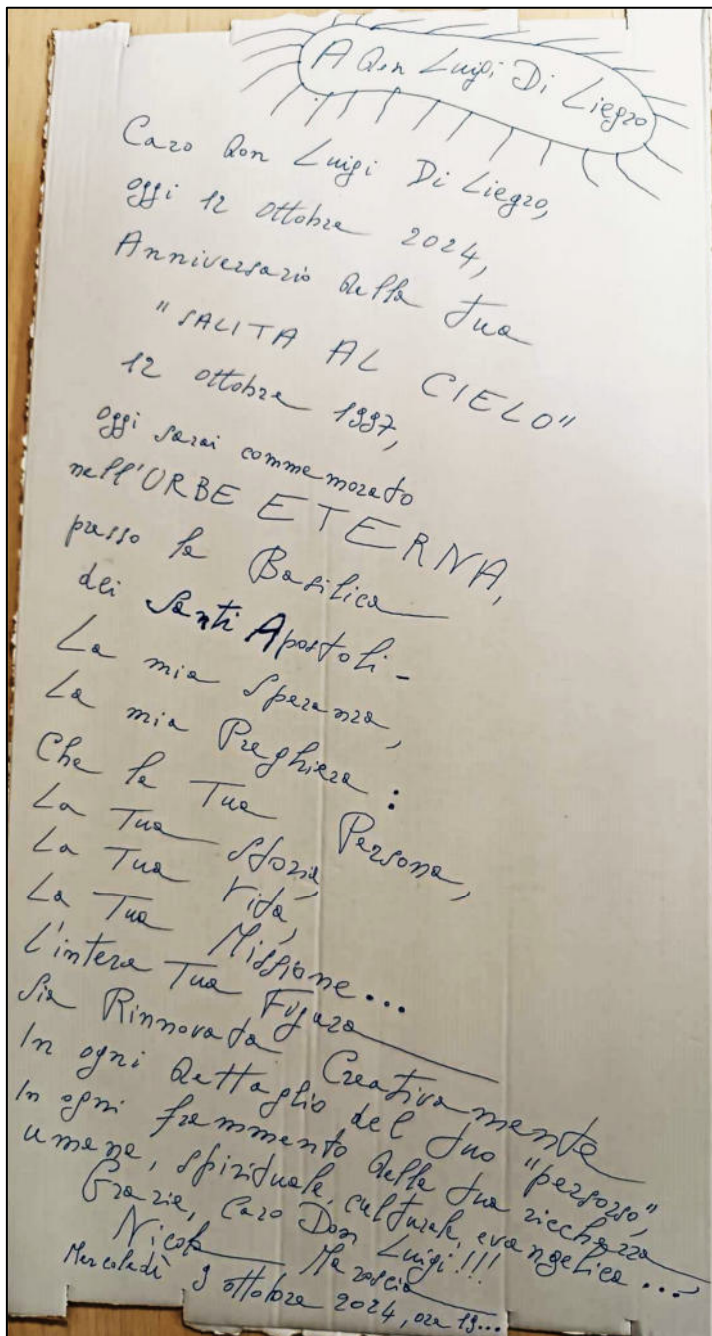 A Don Luigi Di Liegro
Caro Don Luigi Di Liegro,
oggi 12 ottobre 2024,
Anniversario della tua
"SALITA AL CIELO"
12 ottobre 1997,
oggi sarai commemorato
nell'URBE ETERNA,
presso la Basilica
dei Santi Apostoli -
La mia Speranza,
La mia Preghiera :
Che la Tua Persona,
La Tua Storia,
La Tua Vita,
La Tua Missione...
L'intera Tua Figura
Sia Rinnovata Creativamente
In ogni Dettaglio del tuo "persorso",
In ogni frammento della tua ricchezza
umana, spirituale, culturale, evangelica...
Grazie, Caro Don Luigi!!!
Nicola
Mercoledì 9 ottobre 2024, ore 19...